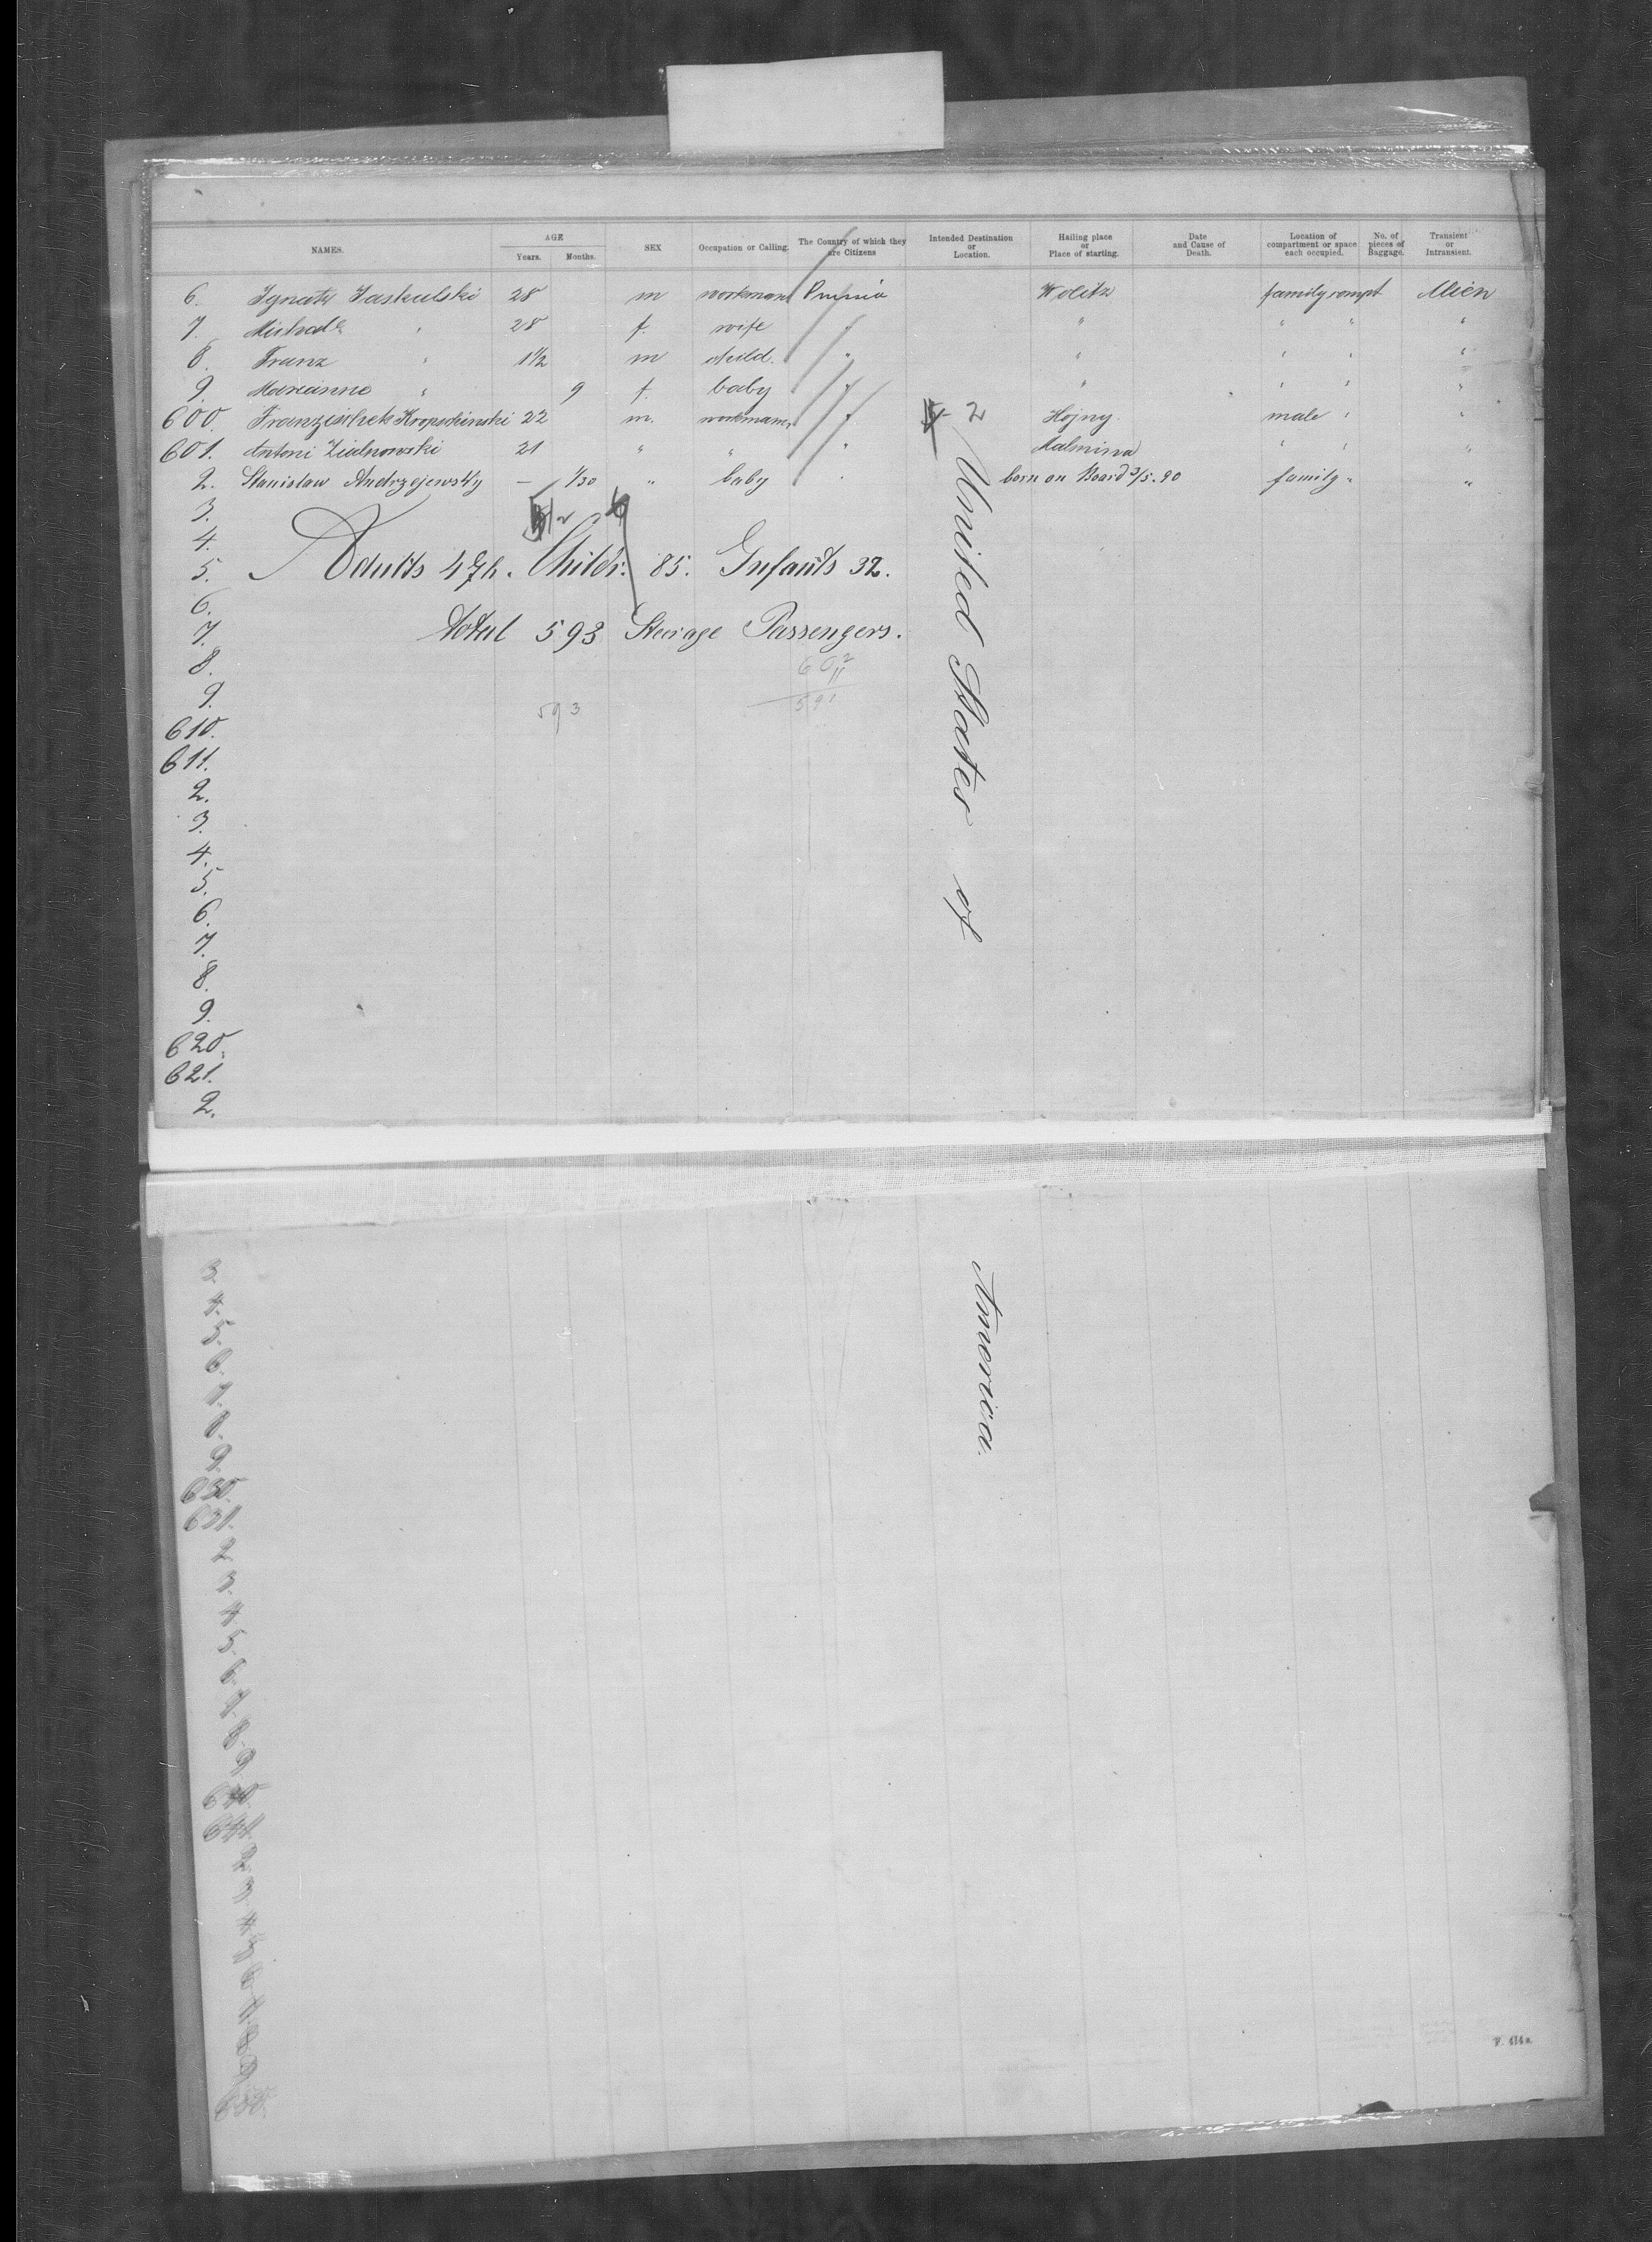 NAMES. AGE Years. Months. SEX Occupation or Calling. The Country of which they are Citizens Intended Destination or Location. Hailing place or Place of starting. Date and Cause of Death. Location of compartment or space each occupied. No. of pieces of Baggage. Transient or Intransient.
6. Ignatz Jaskulski 28 m workman Prussia Wolitz family compt Alien
7. " 28 f. wife " " " " "
8. Franz " 1 1/2 m child. " " " " "
9. Marianne " 9 f. baby " " " " "
600. Franzischek Kropschinski 22 m. workmann " 2 Hojny. male " "
601. Antoni 21 " " " Malmina " " "
2. Stanislaw Andrzejewsky — 1/30 " baby " born on Board 3/5. 90 family " "
3.
4.
5. Adults 476. Childr. 85. Infants 32.
6.
7. total 593 Steerage Passengers.
8. 602
11
9. 593 591
610.
611.
2.
3.
4.
5.
6.
7.
8.
9.
620.
621.
2.
United States of
3.
4.
5.
6.
7.
8.
9.
630.
631.
2.
3.
4.
5.
6.
7.
8.
9.
640.
641.
2.
3.
4.
5.
6.
7.
8.
9.
650.
America.
F. 414a.